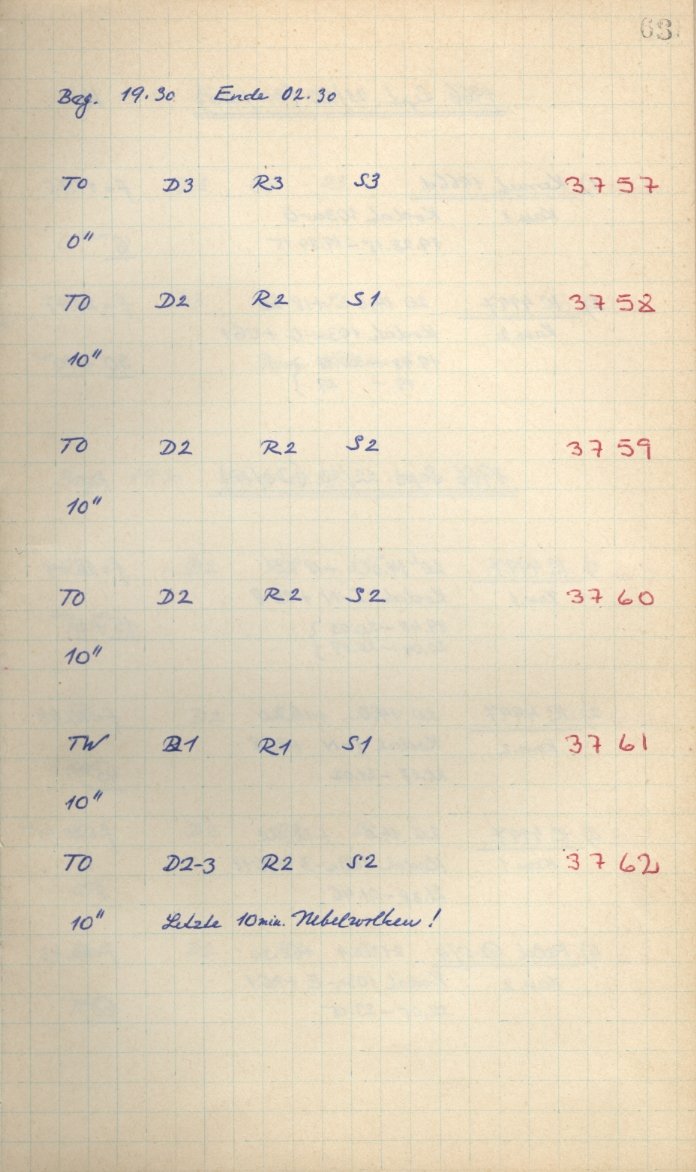 63
Beg. 19.30 Ende 02.30
TO D3 R3 S3 3757
0"
TO D2 R2 S1 3758
10"
TO D2 R2 S2 3759
10"
TO D2 R2 S2 3760
10"
TW D1 R1 S1 3761
10"
TO D2-3 R2 S2 3762
10" Letzte 10 min. Nebelwolken!